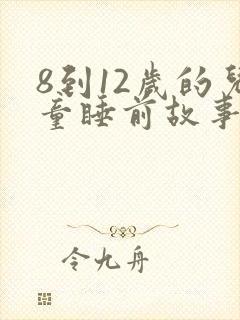 8到12歲的兒
童睡前故事
令九舟